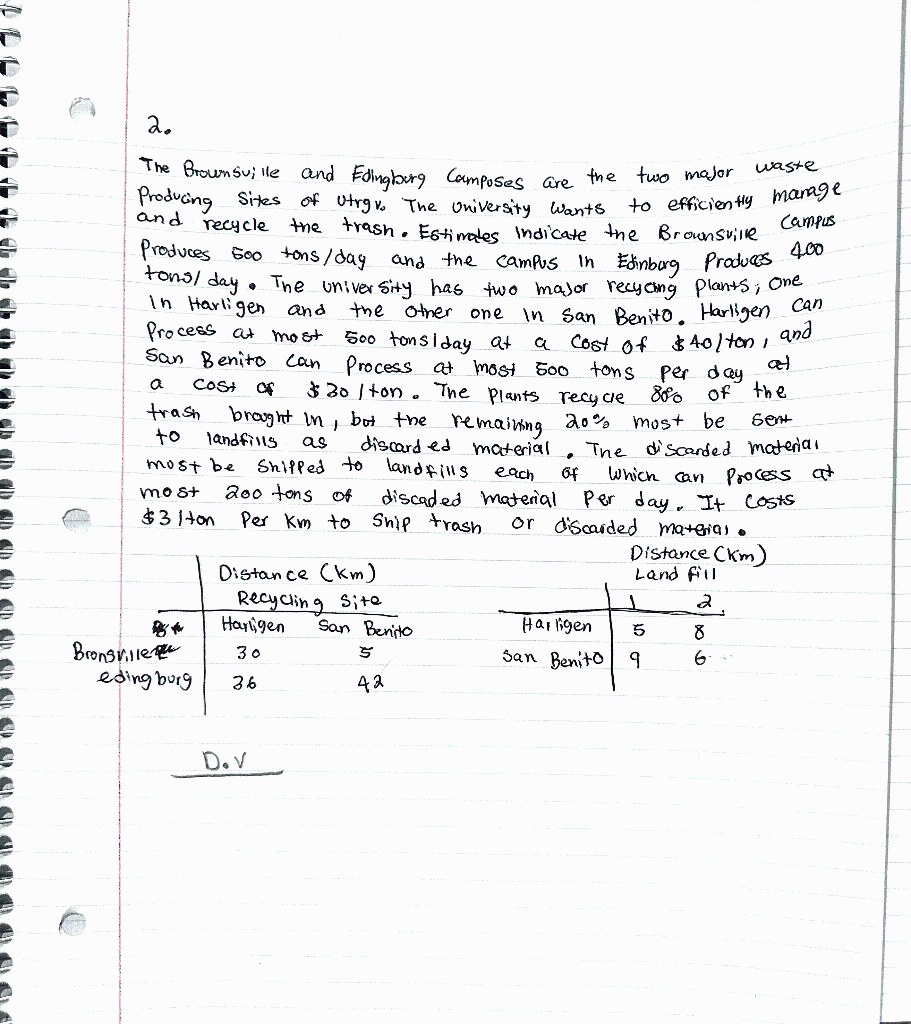 2.
The Brownsville and Edingburg Campuses are the two major waste
Producing Sites of Utrgv. The University Wants to efficiently manage
and recycle the trash. Estimates Indicate the Brownsville Campus
Produces 500 tons/day and the campus in Edinburg Produces 400
tons/day. The university has two major recycing Plants; One
in Harligen and the other one in San Benito. Harligen Can
Process at most 500 tons/day at a Cost of $40/ton, and
San Benito Can Process at most 500 tons per day at
a cost of $30/ton. The Plants recycle 80% of the
trash brought in, but the remaining 20% must be sent
to landfills as discarded material. The discarded material
must be Shipped to landfills each of which can Process at
most 200 tons of discaded material Per day. It Costs
$3/ton Per Km to Ship trash or discarded material.
Distance (Km)
Recycling Site
Harligen San Benito
Bronsville 30 5
edingburg 36 42
Distance (Km)
Land fill
1 2
Harligen 5 8
San Benito 9 6
D.V